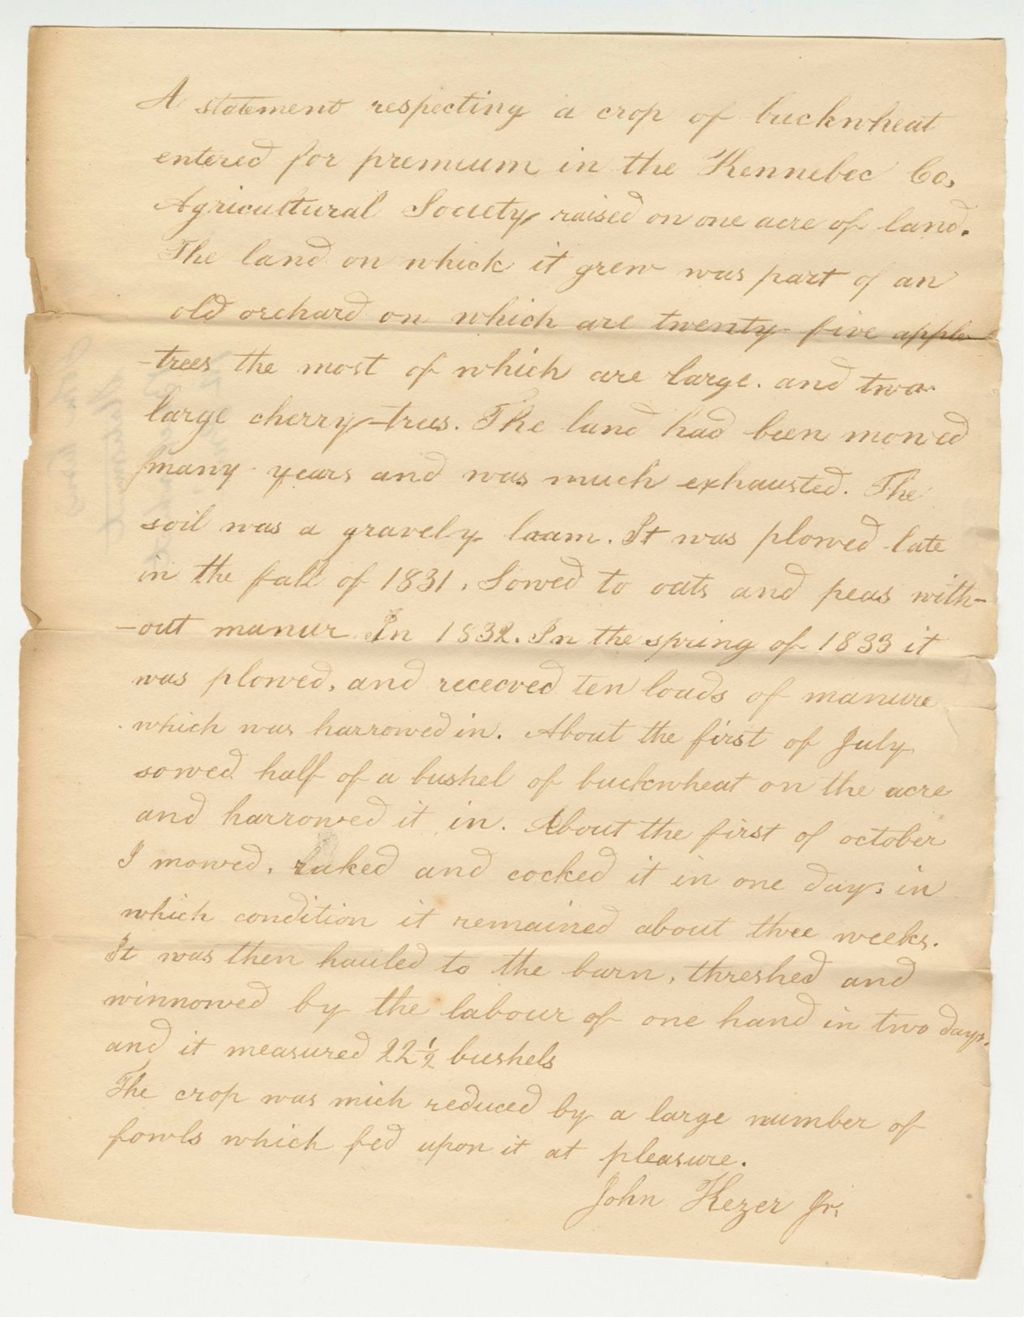 A statement respecting a crop of buckwheat
entered for premium in the Kennebec Co,
Agricultural Society raised on one acre of land.
The land on which it grew was part of an
old orchard on which are twenty five apple
-trees the most of which are large. and two
large cherry-trees. The land had been mowed
many years and was much exhausted. The
soil was a gravely loam. It was plowed late
in the fall of 1831. Sowed to oats and peas with-
-out manur In 1832. In the spring of 1833 it
was plowed, and rececved ten loads of manure
which was harrowed in. About the first of July
sowed half of a bushel of buckwheat on the acre
and harrowed it in. About the first of october
I mowed, raked and cocked it in one day. in
which condition it remained about three weeks.
It was then hauled to the barn, threshed and
winnowed by the labour of one hand in two days.
and it measured 22½ bushels
The crop was mich reduced by a large number of
fowls which fed upon it at pleasure.
John Kezer Jr.